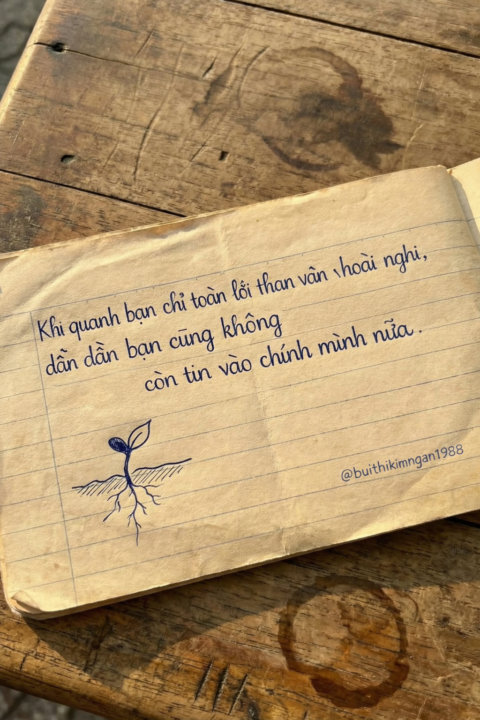 Khi quanh bạn chỉ toàn lời than vãn hoài nghi,
dần dần bạn cũng không
còn tin vào chính mình nữa.
@buithikimngan1988